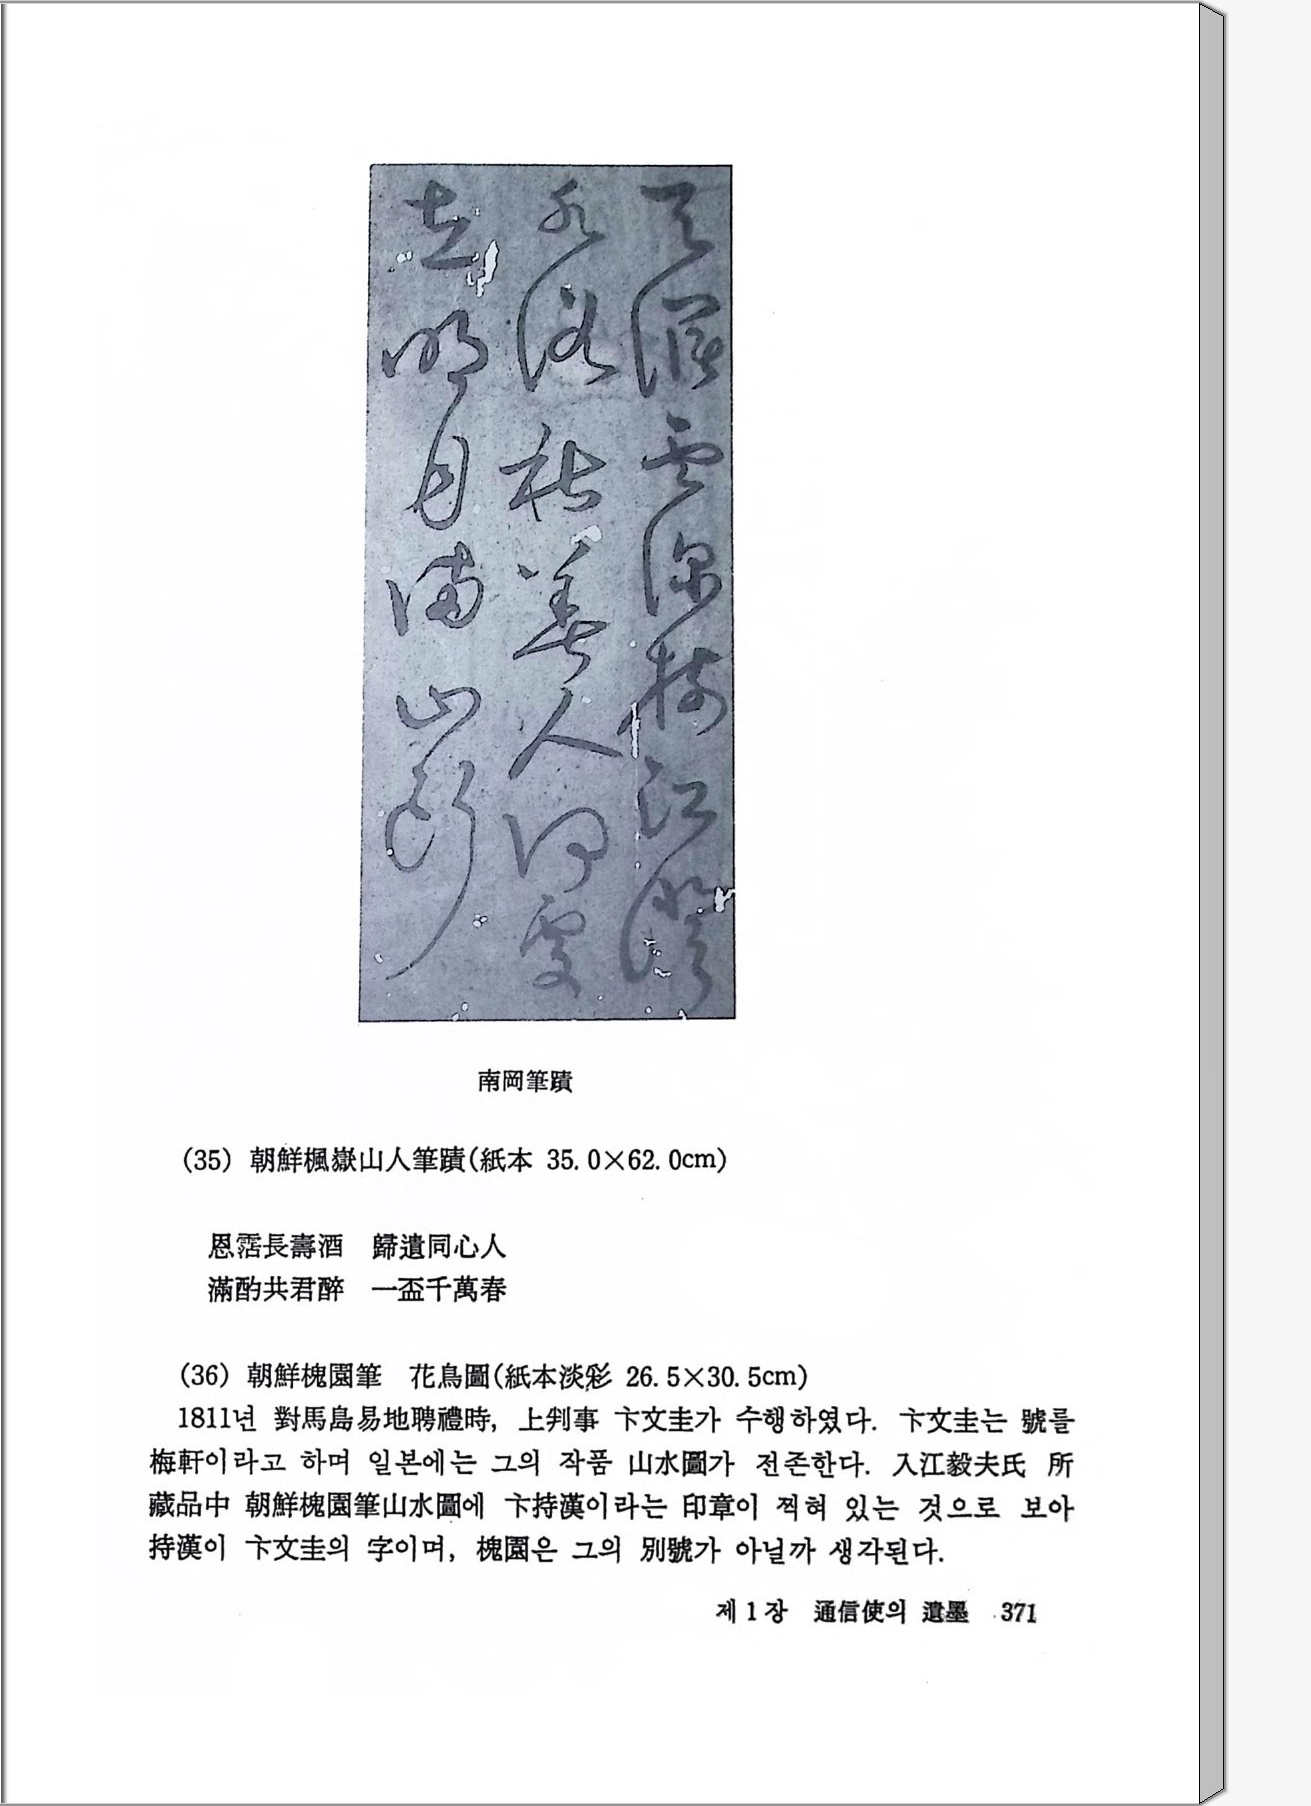 雲深樹江澄
水落秋美人何處
在明月滿山頭
南岡筆蹟
(35) 朝鮮楓嶽山人筆蹟(紙本 35.0×62.0cm)
恩霑長壽酒 歸遺同心人
滿酌共君醉 一盃千萬春
(36) 朝鮮槐園筆 花鳥圖(紙本淡彩 26.5×30.5cm)
1811년 對馬島易地聘禮時, 上判事 卞文圭가 수행하였다. 卞文圭는 號를
梅軒이라고 하며 일본에는 그의 작품 山水圖가 전존한다. 入江毅夫氏 所
藏品中 朝鮮槐園筆山水圖에 卞持漢이라는 印章이 찍혀 있는 것으로 보아
持漢이 卞文圭의 字이며, 槐園은 그의 別號가 아닐까 생각된다.
제1장 通信使의 遺墨 371